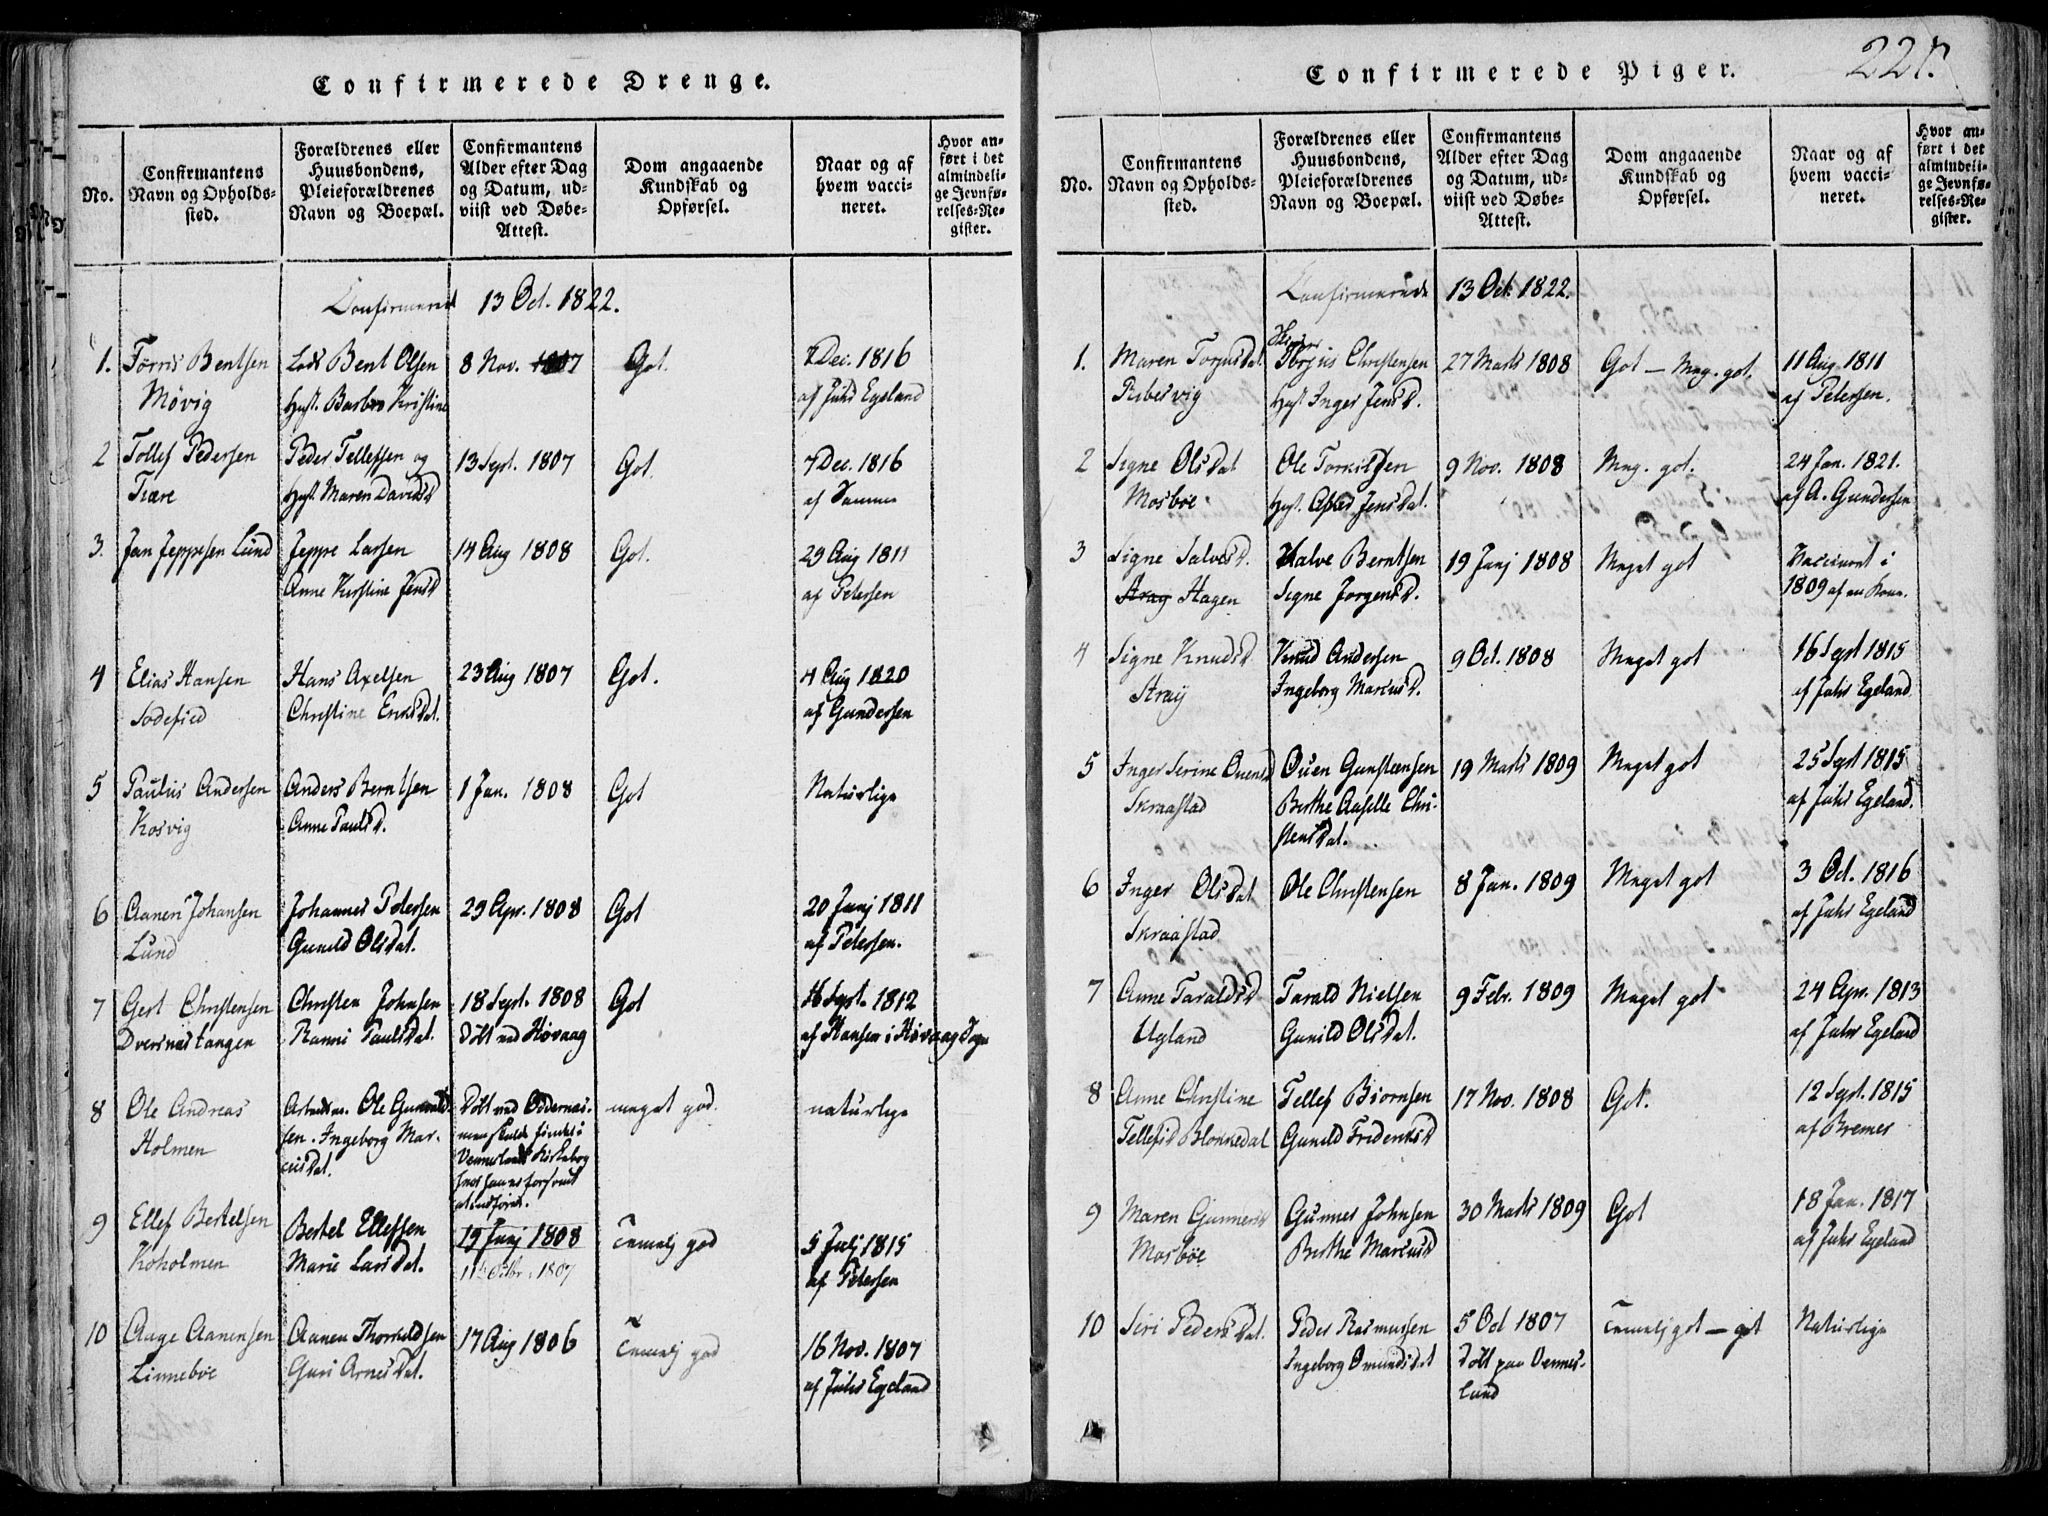 227.
Confirmerede Drenge.
No.
Confirmantens Navn og Opholdssted.
Forældrenes eller Huusbondens, Pleieforældrenes Navn og Boepæl.
Confirmantens Alder efter Dag og Datum, udviist ved Døbe-Attest.
Dom angaaende Kundskab og Opførsel.
Naar og af hvem vaccineret.
Hvor anført i det almindelige Jevnførelses-Register.
Confirmeret 13 Oct. 1822.
1. Tørris Bentsen Lods Bent Olsen 8 Nov. 1807 Got. 7 Dec. 1816
Møvig Hust. Barbro Kristine af Juhs Egeland
2 Tollef Pedersen Peder Tellefsen og 13 Sept. 1807 Got. 7 Dec. 1816
Tiære Hust. Maren Davidsd af Samme
3. Jan Jeppesen Lund Jeppe Larsen 14 Aug 1808 Got. 29 Aug 1811
Anne Kirstine Jensd af Petersen
4 Elias Hansen Hans Axelsen 23 Aug 1807 Got. 4 Aug 1820
Sødefied Christine Eriksdat. af Gundersen
5 Paulus Andersen Anders Berntsen 1 Jan. 1808 Got Naturlige
Kosvig Anne Paulsd.
6 Aanen Johansen Johannes Petersen 29 Apr. 1808 Got 20 Junj 1811
Lund Gunild Olsdat. af Petersen.
7 Gert Christensen Christen Johnsen 18 Sept. 1808 Got 16 Sept. 1812
Dversnestangen Ranni Paulsdat. Døbt ved Høvaag af Hansen i Høvaag Sogn
8 Ole Andreas Ole Gunvald- Døbt ved Oddernes. meget god. naturlige
Holmen sen. Ingeborg Mar- men skulde findes i
cusdat. Vennesland Kirkebog
9 Ellef Bertelsen Bertel Ellefsen 19 Junj 1808 Temelj god 5 Julj 1815
Koholmen Marie Larsdat. 11te Octbr. 1807 af Petersen
10 Aage Aanensen Aanen Thorkildsen 17 Aug 1806 Temelj god 16 Nov. 1807
Linnebøe Guri Arnesdat. af Juhs Egeland
Confirmerede Piger.
No.
Confirmantens Navn og Opholdssted.
Forældrenes eller Huusbondens, Pleieforældrenes Navn og Boepæl.
Confirmantens Alder efter Dag og Datum, udviist ved Døbe-Attest.
Dom angaaende Kundskab og Opførsel.
Naar og af hvem vaccineret.
Hvor anført i det almindelige Jevnførelses-Register.
Confirmerede 13 Oct. 1822.
1. Maren Torjusdat. Torjus Christensen 27 Marts 1808 Got — Meg. got. 11 Aug 1811
Ribesvig Hust Inger Jensd. af Petersen.
2 Signe Olsdat Ole Torkilsen 9 Nov. 1808 Meg. got. 24 Jan. 1821.
Mosbøe Hust. Jensdat. af A. Gundersen
3 Signe Salvesd. Salve Berntsen 19 Junj 1808 Meget got Vaccineret i
Stray Hagen Signe Jørgensd. 1809 af en Kone.
4 Signe Knudsd Knud Andersen 9 Oct. 1808 Meget got 16 Sept 1815
Straÿ Ingeborg Marcusd. af Juhs Egeland
5 Inger Serine Ouensd Ouen Gunsteensen 19 Marts 1809 Meget got 25 Sept 1815
Skraastad Berthe Aaselle Chri- af Juhs Egeland.
stensdat.
6 Inger Olsdat Ole Christensen 8 Jan. 1809 Meget got 3 Oct. 1816
Skraastad af Juhs Egeland
7 Anne Taraldsd Tarald Nielsen 9 Febr. 1809 Meget got 24 Apr. 1813
Ugland Gunild Olsdat. af Juhs Egeland
8 Anne Christine Tellef Biørnsen 17 Nov. 1808 Got. 12 Sept. 1815
Tellefsd Blokkedal Gunild Fridriksd af Bremer
9 Maren Gunnersd Gunner Johnsen 30 Marts 1809 Got 18 Jan. 1817
Mosbøe Berthe Marcusd af Juhs Egeland
10 Siri Pedersdat. Peder Rasmussen 5 Oct 1807 Temelj got — got Naturlige
Ingeborg Omundsdat Døbt paa Vennes-
lund